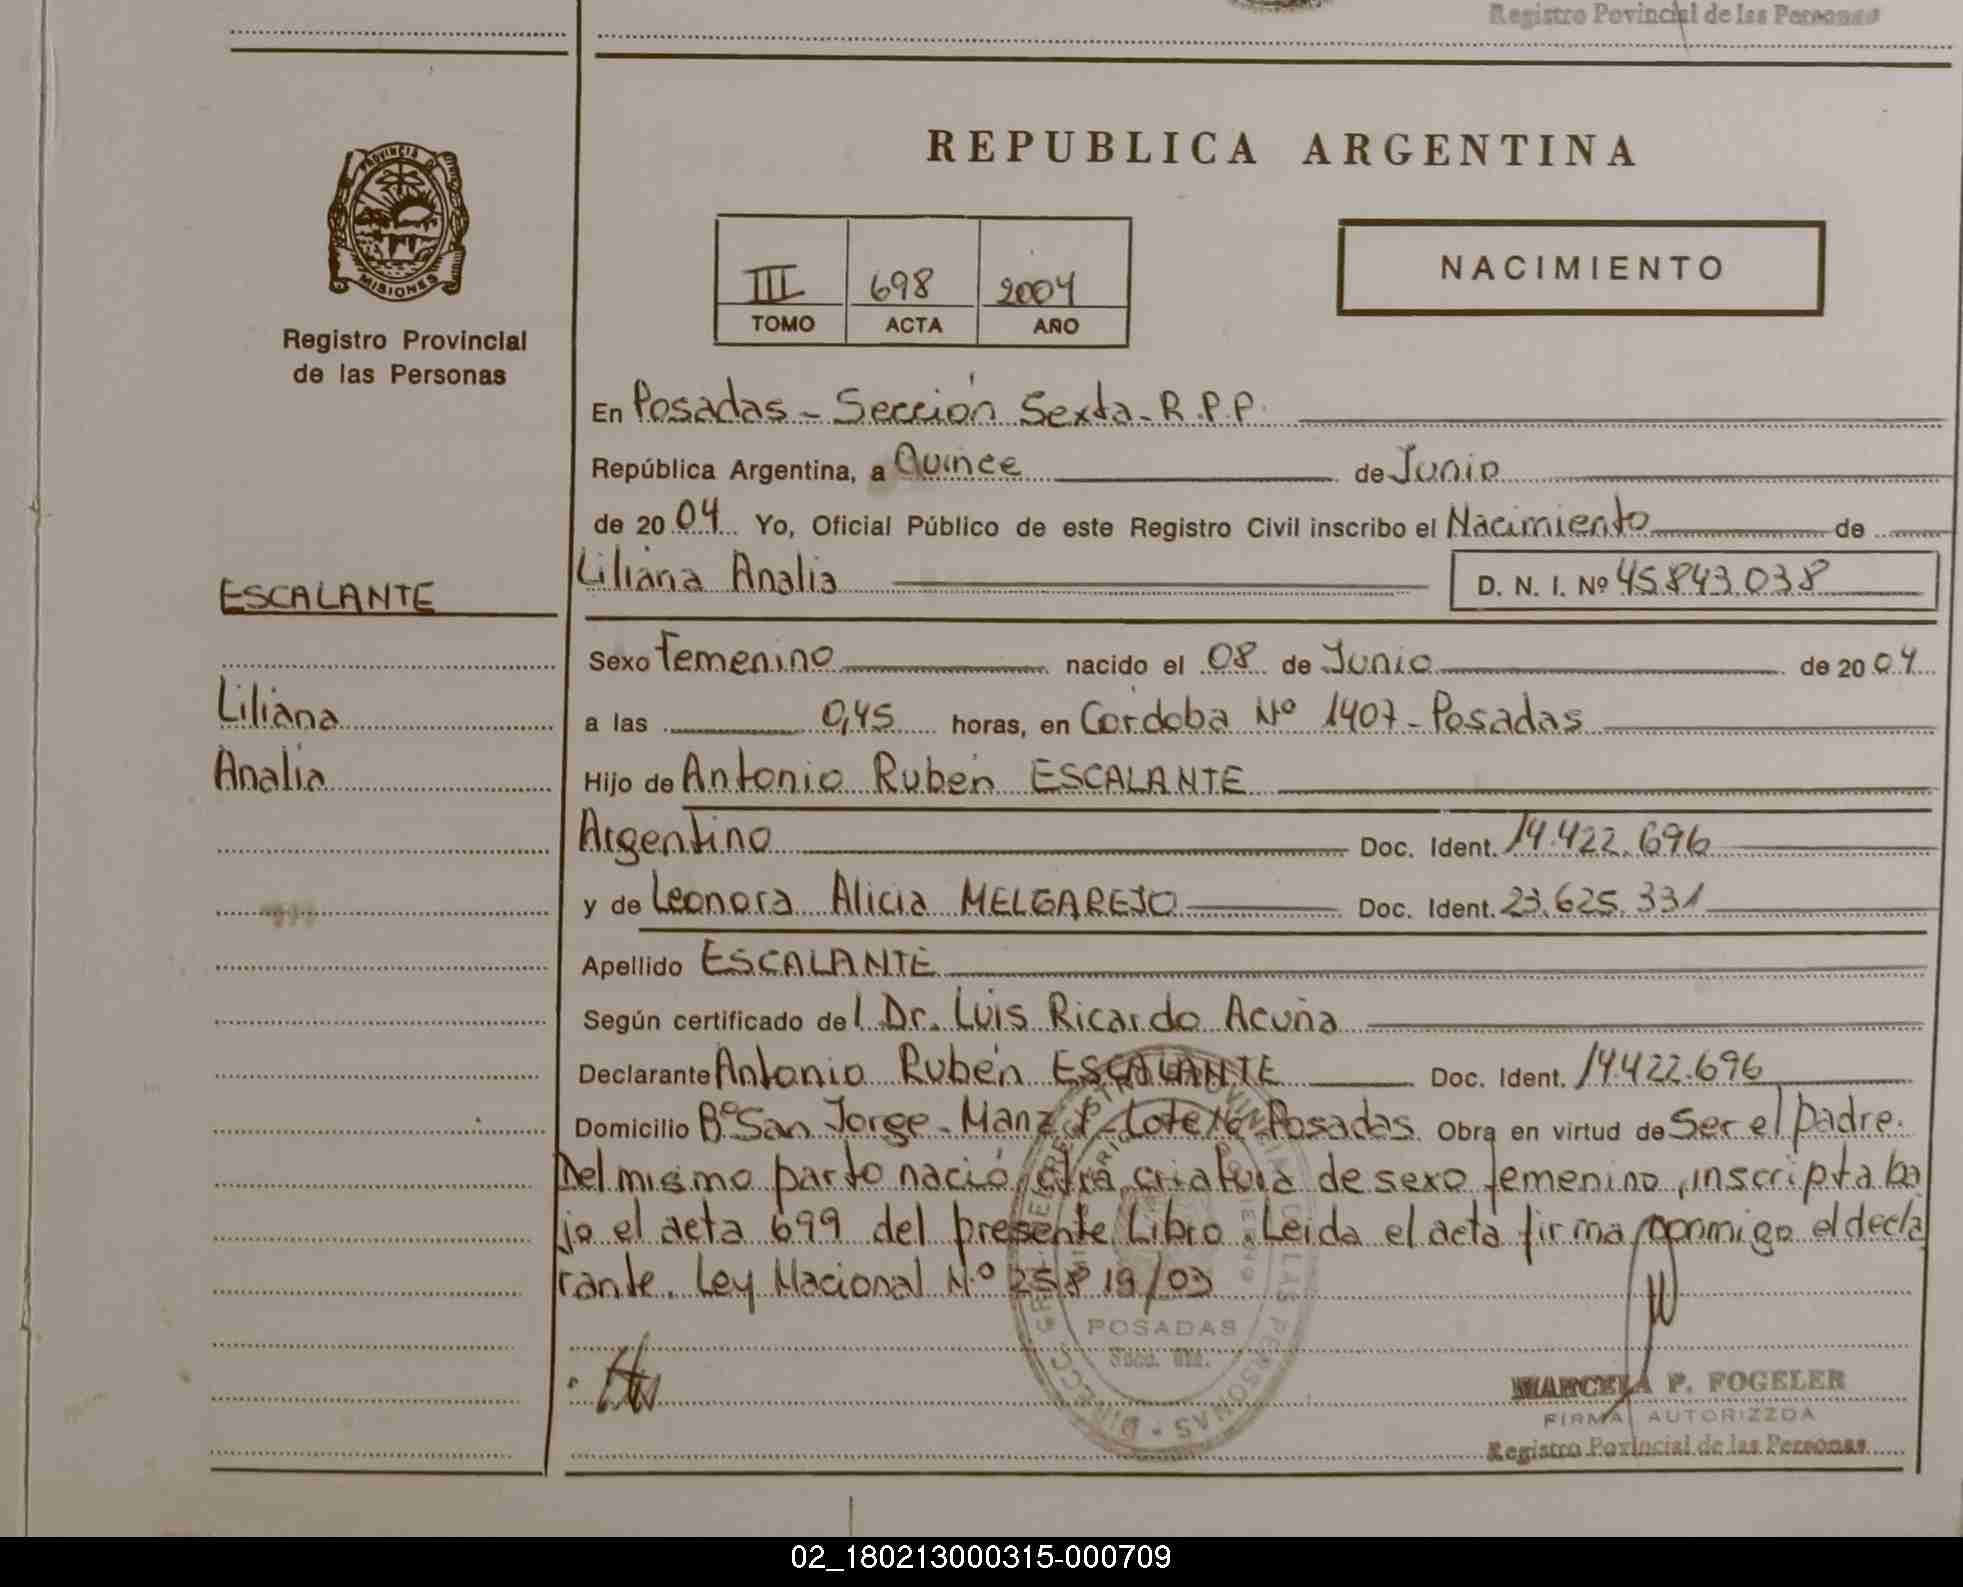 Registro Povincial de las Personas
REPUBLICA ARGENTINA
PROVINCIA DE
MISIONES
Registro Provincial
de las Personas
III 698 2004
TOMO ACTA AÑO
NACIMIENTO
En Posadas - Sección Sexta - R.P.P.
República Argentina, a Quince de Junio
de 2004 Yo, Oficial Público de este Registro Civil inscribo el Nacimiento de
ESCALANTE
Liliana Analia D. N. I. Nº 45.843.038
Sexo Femenino nacido el 08 de Junio de 2004
Liliana
a las 0,45 horas, en Córdoba Nº 1407 - Posadas
Analia
Hijo de Antonio Rubén ESCALANTE
Argentino Doc. Ident. 14.422.696
y de Leonora Alicia MELGAREJO Doc. Ident. 23.625.331
Apellido ESCALANTE
Según certificado del Dr. Luis Ricardo Acuña
Declarante Antonio Rubén ESCALANTE Doc. Ident. 14.422.696
Domicilio Bº San Jorge - Manz Lote Posadas Obra en virtud de Ser el padre.
Del mismo parto nació otra criatura de sexo femenino, inscripta ba
jo el acta 699 del presente Libro. Leida el acta firma conmigo el decla
rante. Ley Nacional Nº 25819/03
POSADAS
MARCELA P. FOGELER
FIRMA AUTORIZZDA
Registro Povincial de las Personas
02_180213000315-000709